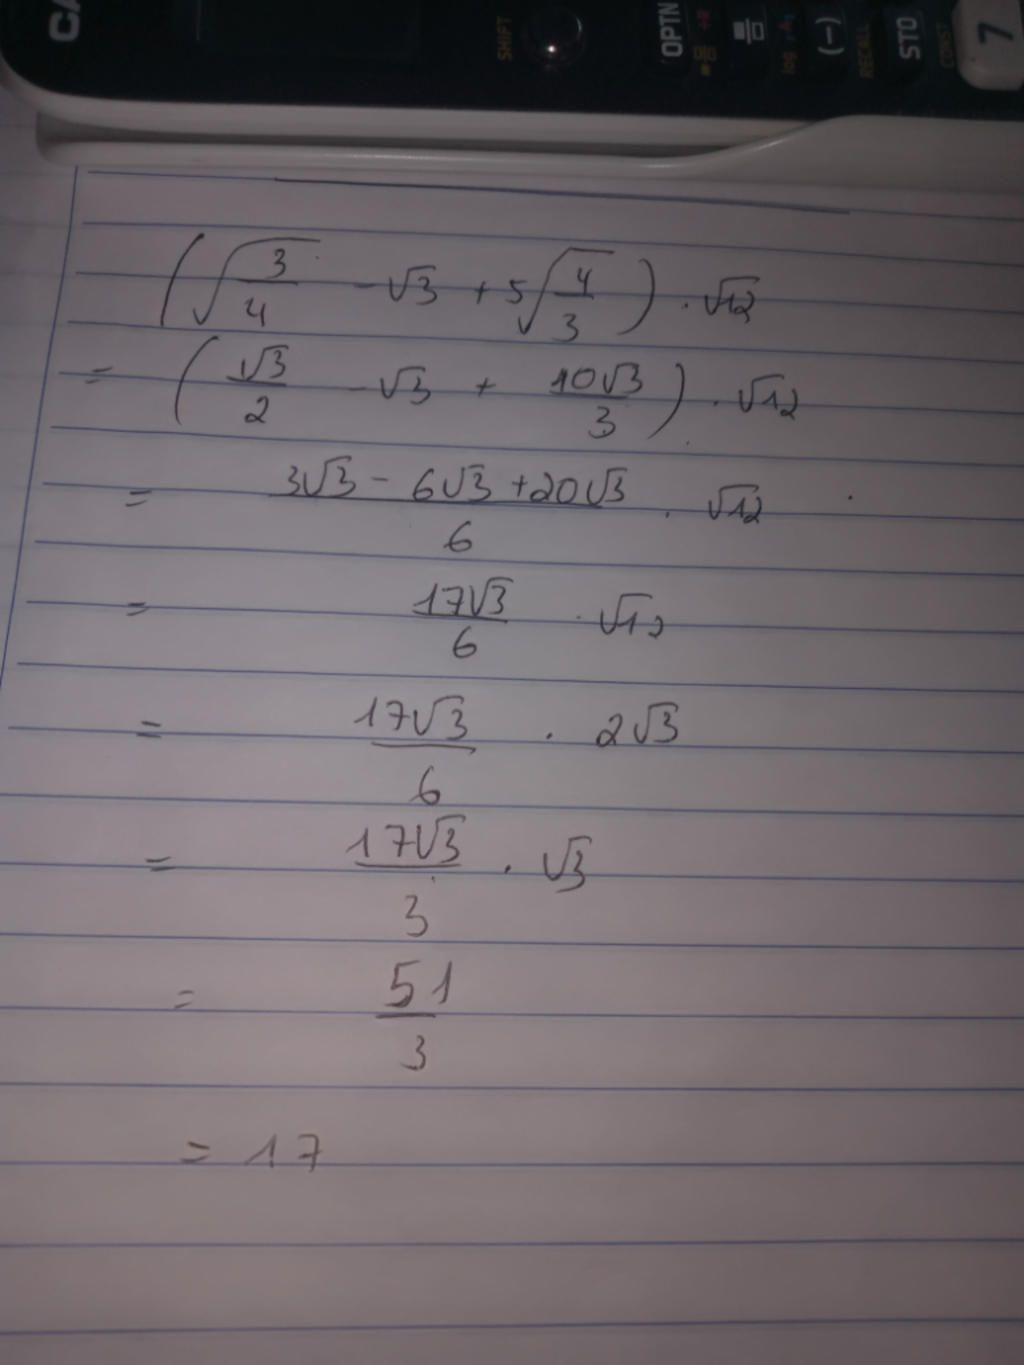 CA
SHIFT OPTN (-) STO 7
log RECALL CONST
(√(3/4) - √3 + 5√(4/3)) . √12
= (√3/2 - √3 + 10√3/3) . √12
= (3√3 - 6√3 + 20√3)/6 . √12
= 17√3/6 . √12
= 17√3/6 . 2√3
= 17√3/3 . √3
= 51/3
= 17